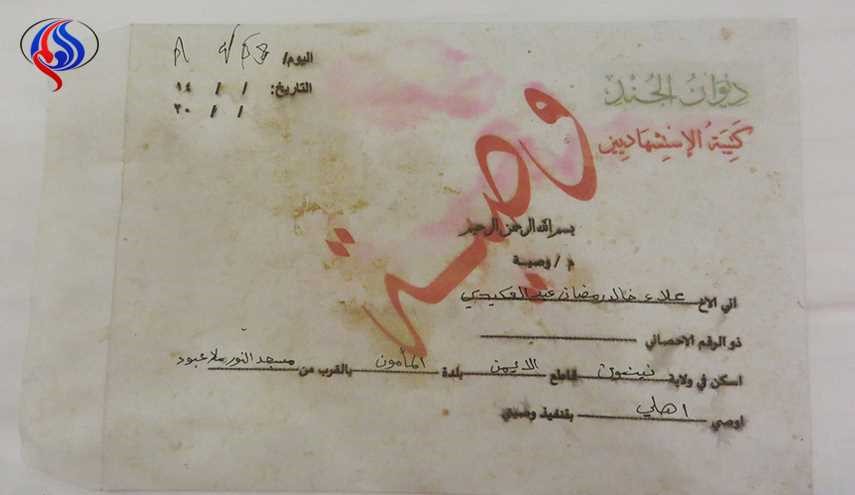 ديوان الجند
كتيبة الإستشهاديين
اليوم/
التاريخ: / / ١٤
/ / ٢٠
وصية
بسم الله الرحمن الرحيم
م / وصية
اني الاخ علاء خالد رمضان عبد العكيدي
ذو الرقم الاحصائي
اسكن في ولاية نينوى قاطع الايمن بلدة المأمون بالقرب من مسجد النور ملا عبود
اوصي اهلي بتنفيذ وصيتي